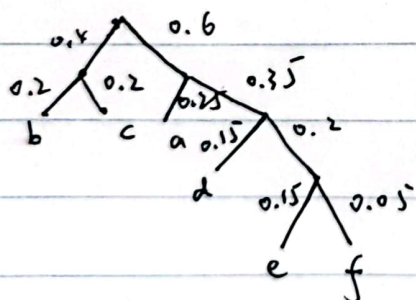 0.4 0.6
0.2 0.2 0.25 0.35
b c a 0.15 0.2
d 0.15 0.05
e f